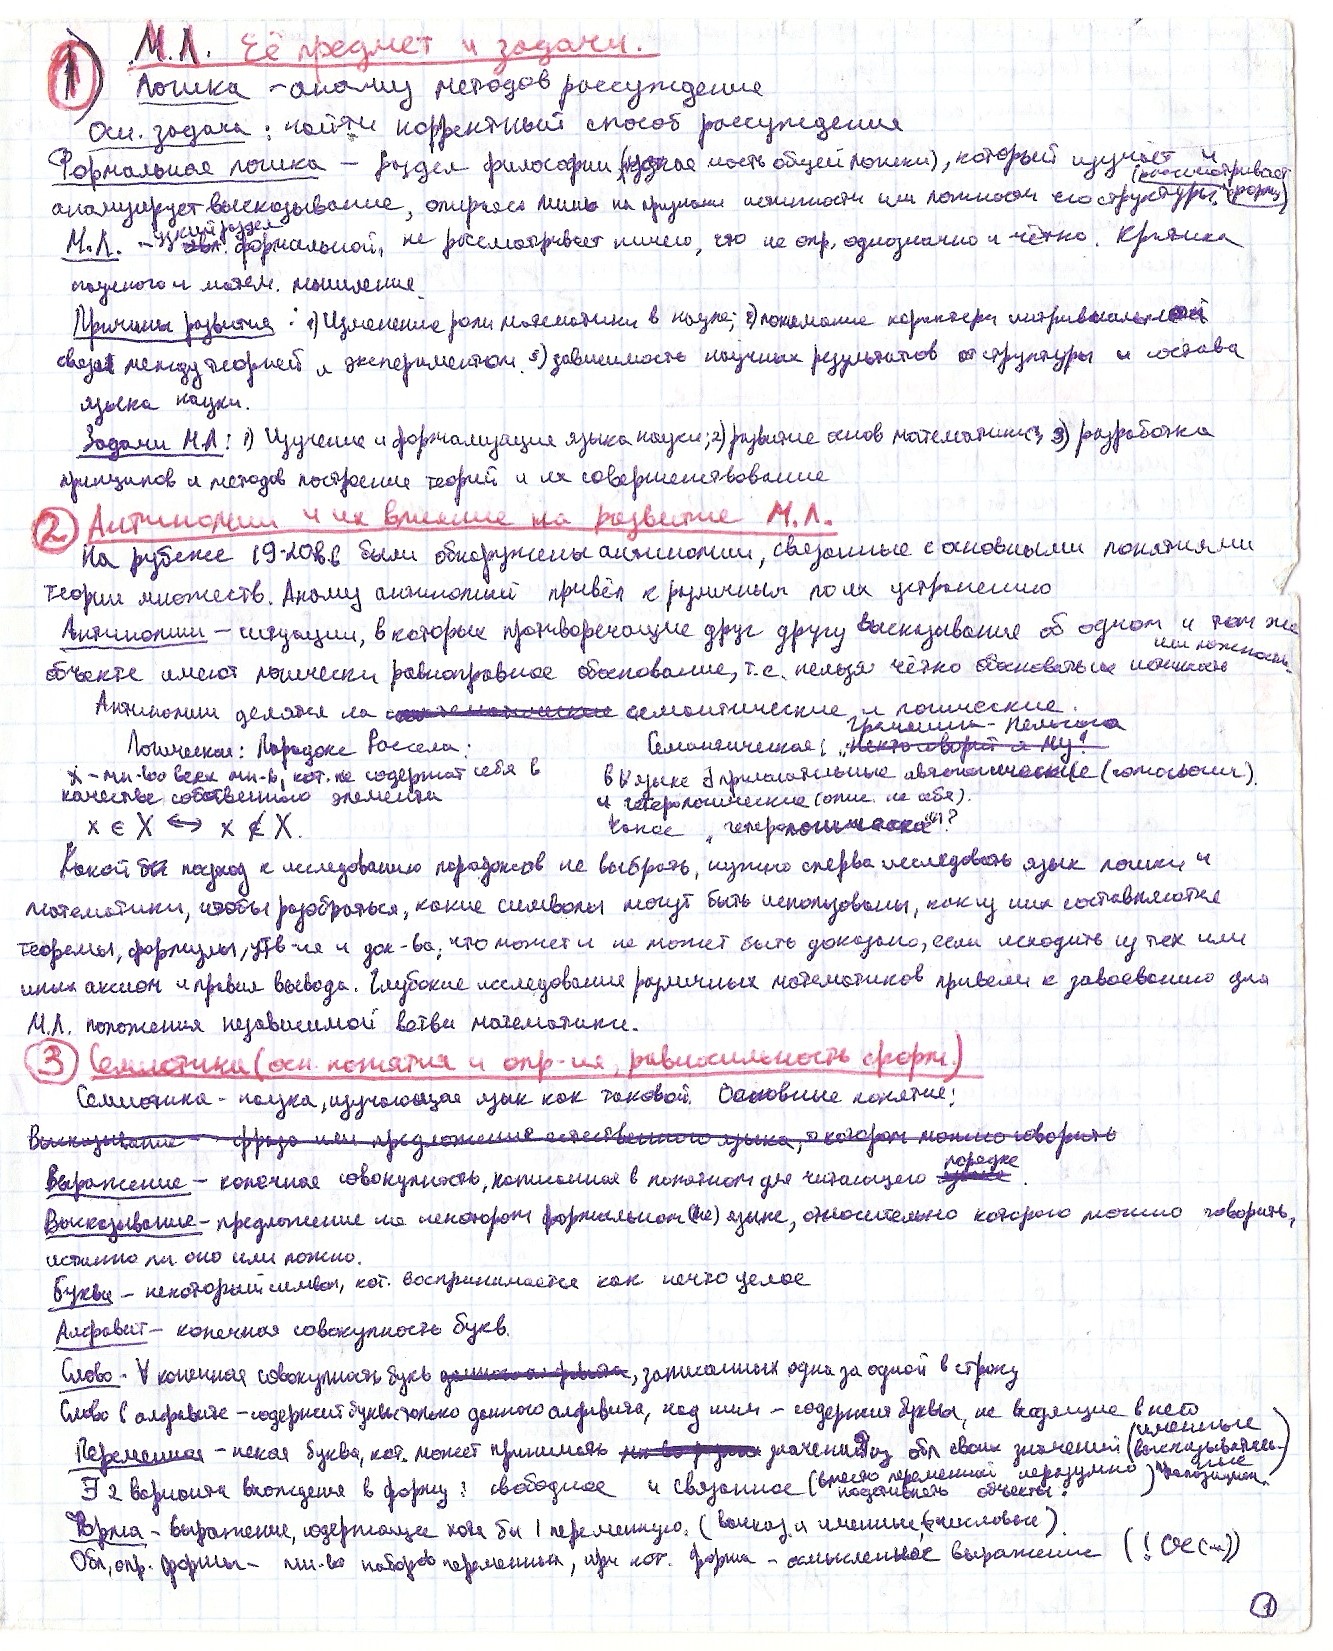 1 М.Л. Её предмет и задачи.
Логика - анализ методов рассуждение
Осн. задача: найти корректный способ рассуждения
Формальная логика - раздел философии (часть общей логики), который изучает и (рассматривает
анализирует высказывание, опираясь лишь на признаки истинности или ложности его структуры. форму)
М.Л. - узкий раздел формальной, не рассматривает ничего, что не опр. однозначно и чётко. Критика
научного и матем. мышления.
Причины развития: 1) Изменение роли математики в науке; 2) понимание характера нетривиальной
связи между теорией и экспериментом. 3) зависимость научных результатов от структуры и состава
языка науки.
Задачи М.Л: 1) Изучение и формализация языка науки; 2) развитие основ математики; 3) разработка
принципов и методов построение теорий и их совершенствование
2 Антиномии и их влияние на развитие М.Л.
На рубеже 19-20 в.в были обнаружены антиномии, связанные с основными понятиями
теории множеств. Анализ антиномий привёл к различным по их устранению
Антиномии - ситуации, в которых противоречащие друг другу высказывание об одном и том же
объекте имеют логически равноправное обоснование, т.е. нельзя чётко обосновать их истинность или ложность.
Антиномии делятся на семантические и логические.
Логическая: Парадокс Рассела:
X - мн-во всех мн-в, кот. не содержат себя в
качестве собственного элемента
x ∈ X ↔ x ∉ X.
Семантическая: Греллинг - Нельсона
В языке ∃ прилагательные автологические (самоопис).
и гетерологические (опис. не себя).
Какое "гетерологическое"?
Какой бы подход к исследованию парадоксов не выбрать, нужно сперва исследовать язык логики и
математики, чтобы разобраться, какие символы могут быть использованы, как из них составляются
теоремы, формулы, утв-ия и док-ва; что может и не может быть доказано, если исходить из тех или
иных аксиом и правил вывода. Глубокие исследования различных математиков привели к завоеванию для
М.Л. положения независимой ветви математики.
3 Семиотика (осн. понятия и опр-ия, равносильность форм.)
Семиотика - наука, изучающая язык как таковой. Основные понятие:
Высказывание - фраза или предложение естественного языка, о котором можно говорить
Выражение - конечная совокупность, написанная в понятном для читающего порядке.
Высказывание - предложение на некотором формальном (не) языке, относительно которого можно говорить,
истинно ли оно или ложно.
Буква - некоторый символ, кот. воспринимается как нечто целое
Алфавит - конечная совокупность букв.
Слово - ∀ конечная совокупность букв данного алфавита, записанных одна за одной в строку
Слово в алфавите - содержит буквы только данного алфавита, над ним - содержит буквы, не входящие в него
Переменная - некая буква, кот. может принимать значений из обл своих значений (именные высказыватель-
ные пропозицион.)
∃ 2 варианта вхождения в форму: свободное и связанное (вместо переменной неразумно подставлять объекты.
Форма - выражение, содержащее хотя бы 1 переменную. (высказ. и именные, числовые).
Обл. опр. формы - мн-во наборов переменных, при кот. форма - осмысленное выражение
1